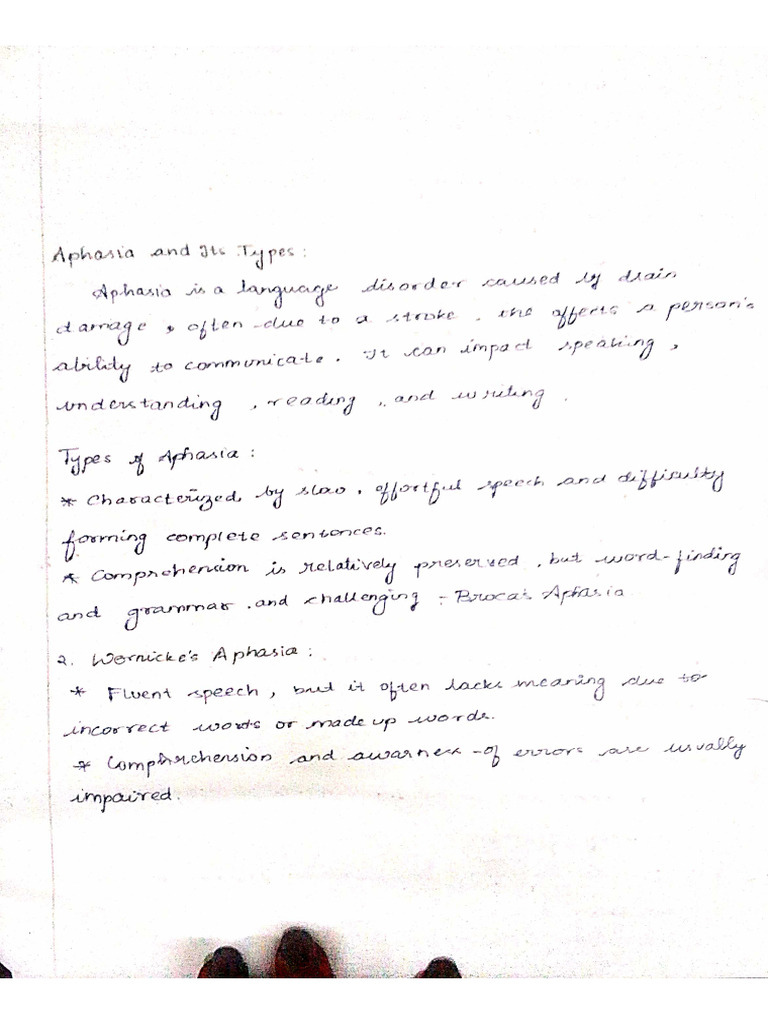 Aphasia and Its Types:
Aphasia is a language disorder caused by drain
damage, often due to a stroke. the affects a person's
ability to communicate. It can impact speaking,
understanding, reading, and writing.
Types of Aphasia:
* Characterized by slow, effortful speech and difficulty
forming complete sentences.
* Comprehension is relatively preserved, but word-finding
and grammar and challenging - Broca's Aphasia
2. Wernicke's Aphasia:
* Fluent speech, but it often lacks meaning due to
incorrect words or made up words.
* Comprehension and awarness of errors are usually
impaired.